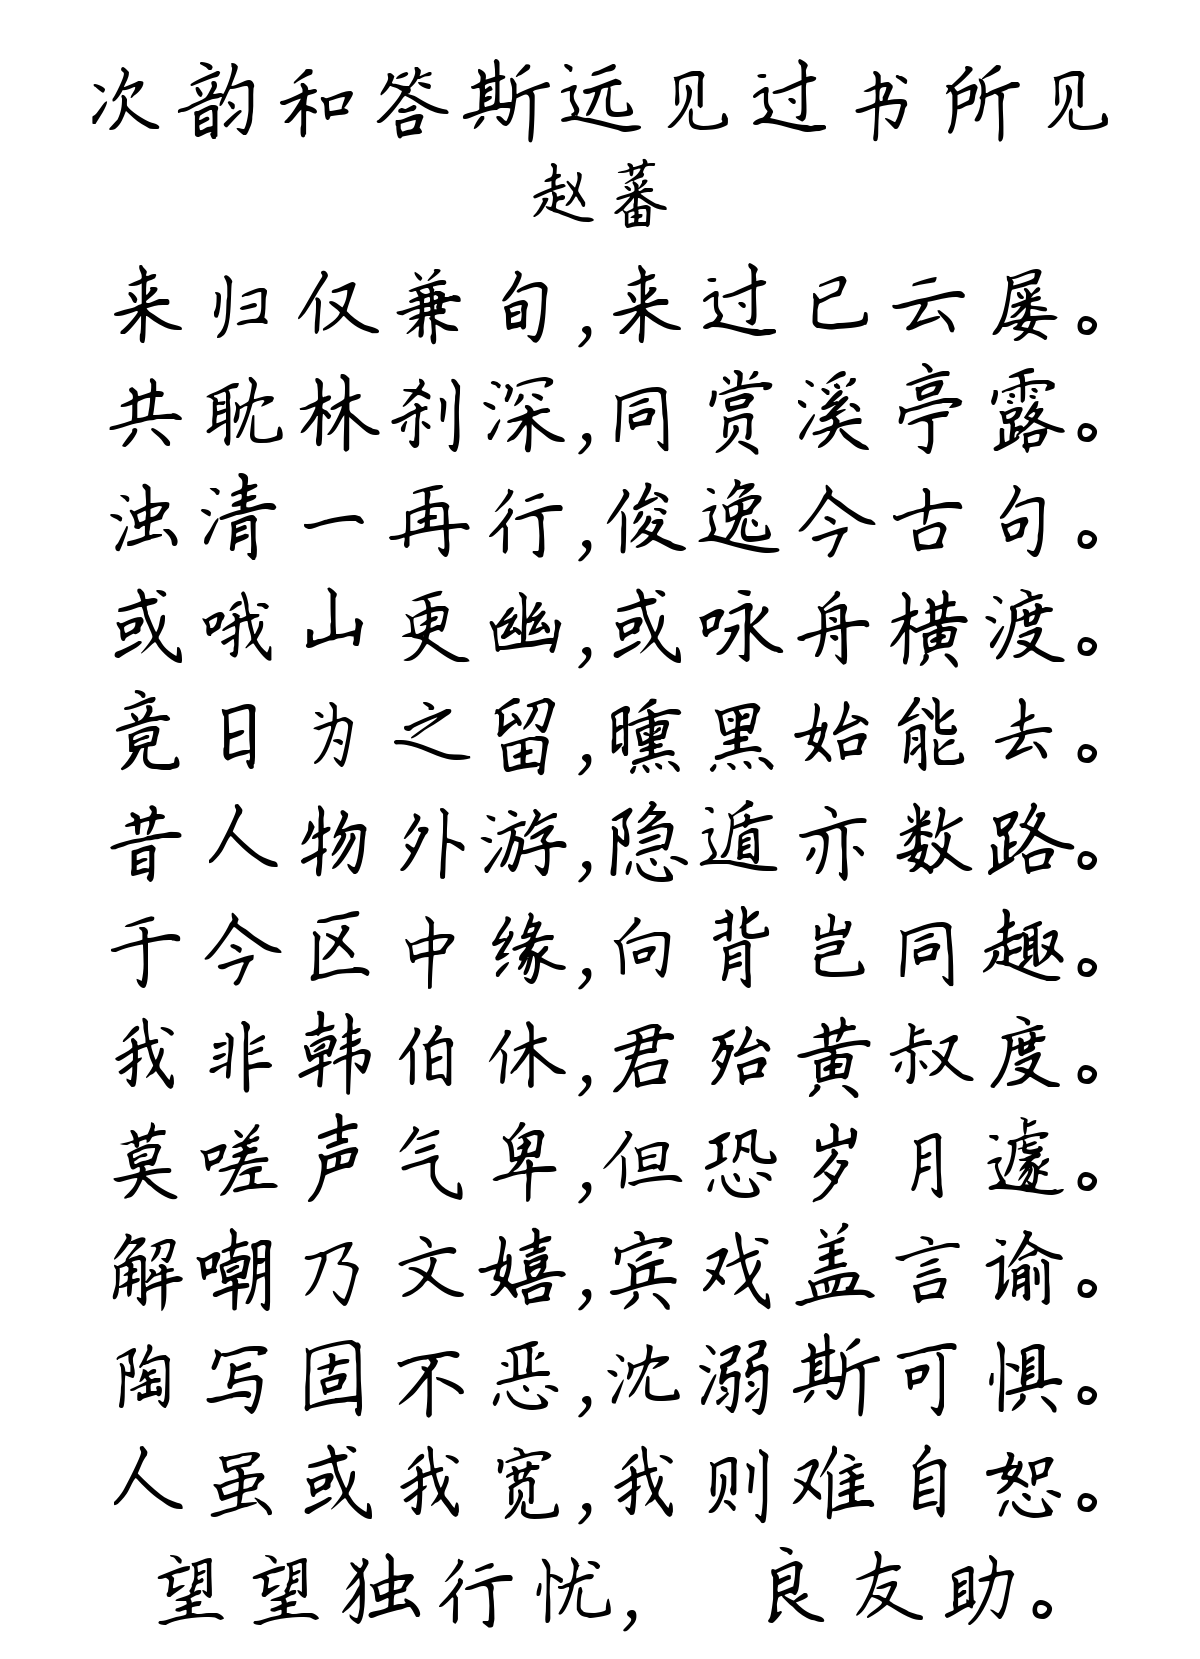 次韵和答斯远见过书所见
赵蕃
来归仅兼旬,来过已云屡。
共耽林刹深,同赏溪亭露。
浊清一再行,俊逸今古句。
或哦山更幽,或咏舟横渡。
竟日为之留,曛黑始能去。
昔人物外游,隐遁亦数路。
于今区中缘,向背岂同趣。
我非韩伯休,君殆黄叔度。
莫嗟声气卑,但恐岁月遽。
解嘲乃文嬉,宾戏盖言谕。
陶写固不恶,沈溺斯可惧。
人虽或我宽,我则难自恕。
望望独行忧, 良友助。